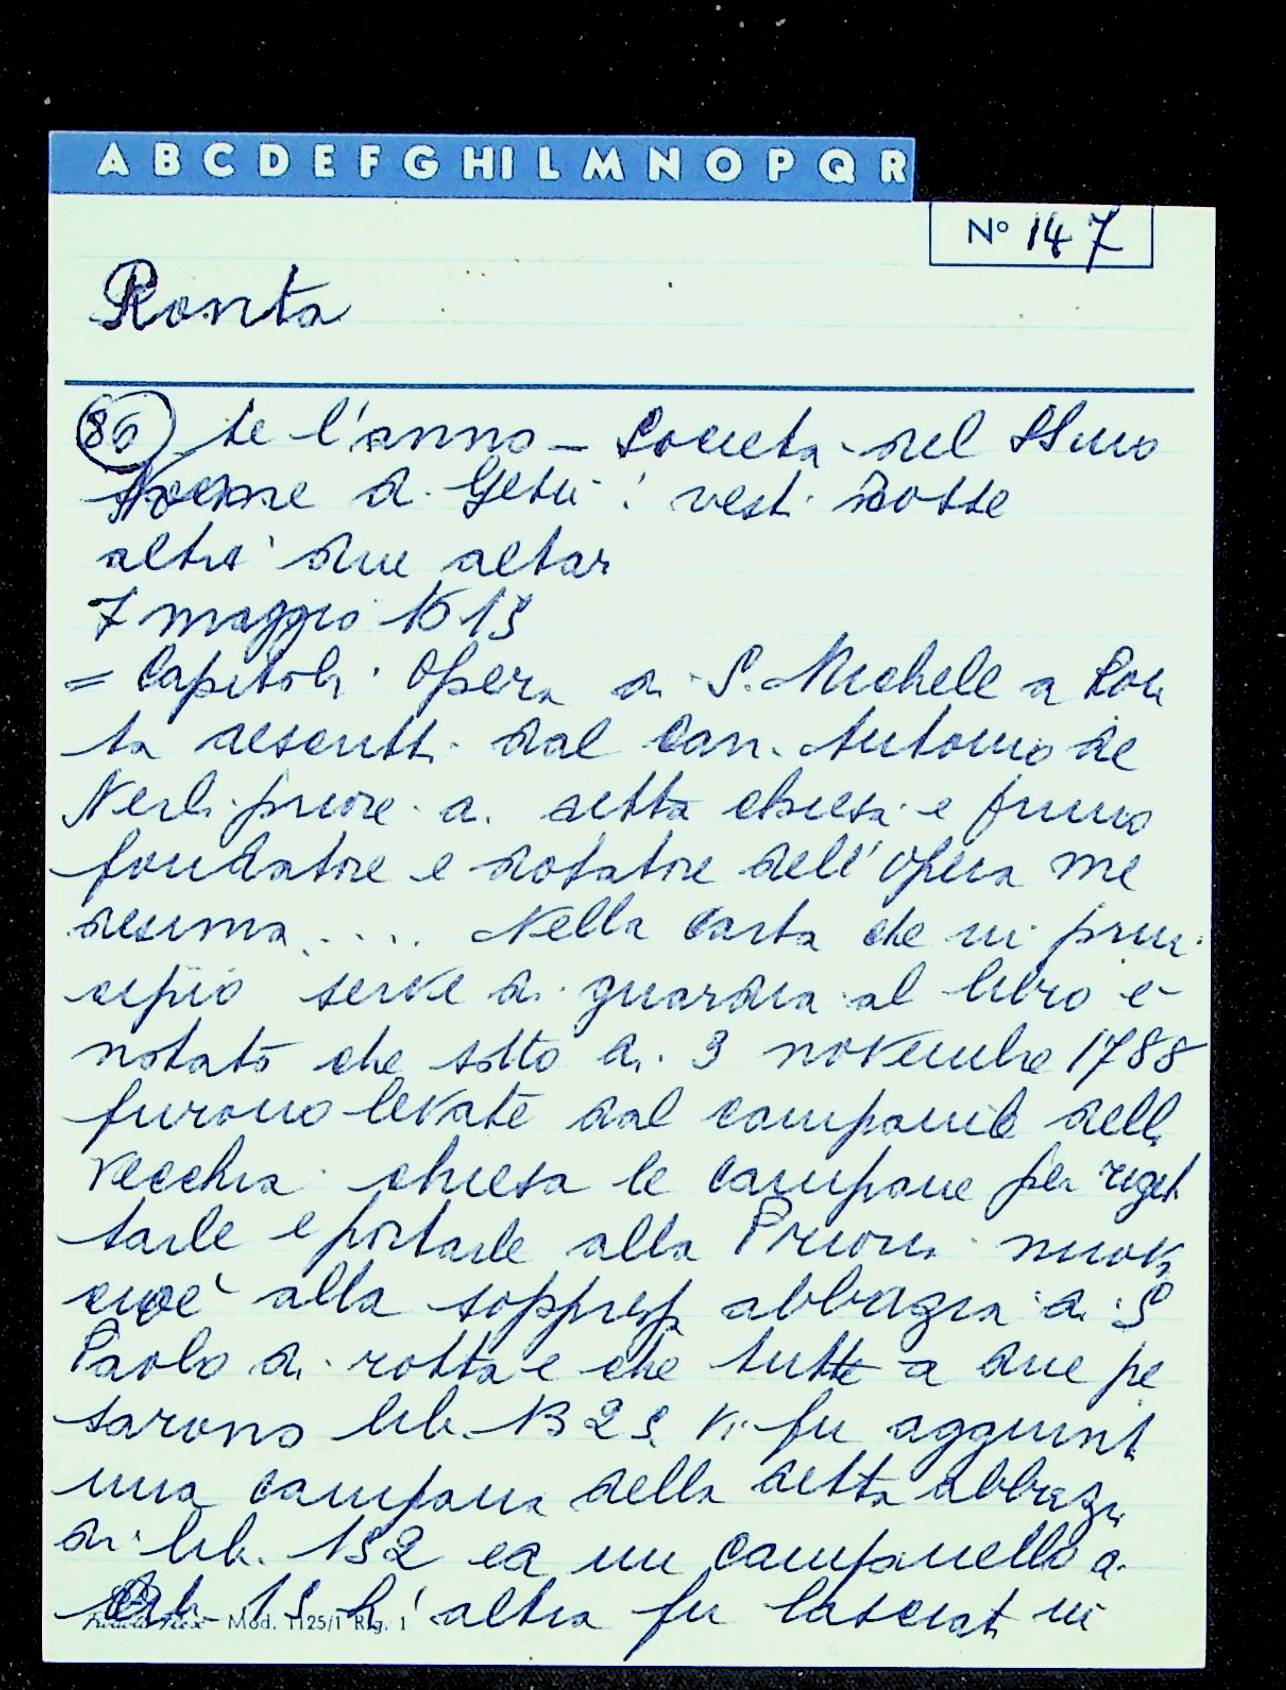 A B C D E F G H I L M N O P Q R
N° 147
Ronta
86 te l'anno - Società del SSmo
Nome di Gesù: vesti Rosse
altri due altar
7 maggio 1615
= Capitoli Opera di S. Michele a Ron
ta descritti dal Can. Antonio de
Nerli priore di detta chiesa e primo
fondatore e dotatore dell'opera me
desima .... Nella carta che in prin
cipio serve di guardia al libro è
notato che sotto di 3 novembre 1788
furono levate dal campanile dell
vecchia chiesa le campane per riget
tarle e portarle alla Prioria nuova
cioè alla soppressa abbazia di S
Paolo di rotta e che tutte a due pe
sarono lib. 1325 Vi fu aggiunt
una campana della detta abbazi
di lib. 152 ed un campanello di
lib 15 L'altra fu lasciat in
Mod. 1125/1 Rig. 1